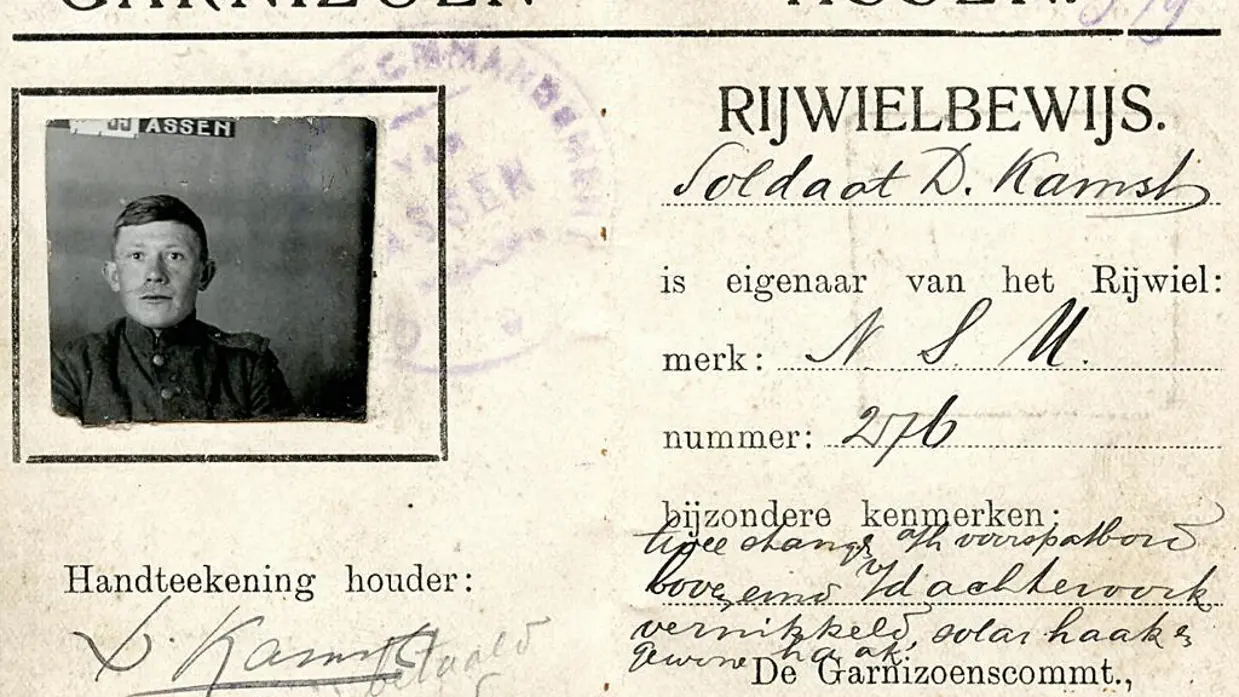 GARNIZOEN ASSEN.
ASSEN
COMMANDEMENT
VAN
ASSEN
RIJWIELBEWIJS.
Soldaat D. Kamst
is eigenaar van het Rijwiel:
merk: N. S. U.
nummer: 276
bijzondere kenmerken:
twee voorspatbord
achtervork
vernikkeld, solar haak
gewone haak
Handteekening houder:
D. Kamst
betaald
De Garnizoenscommt.,